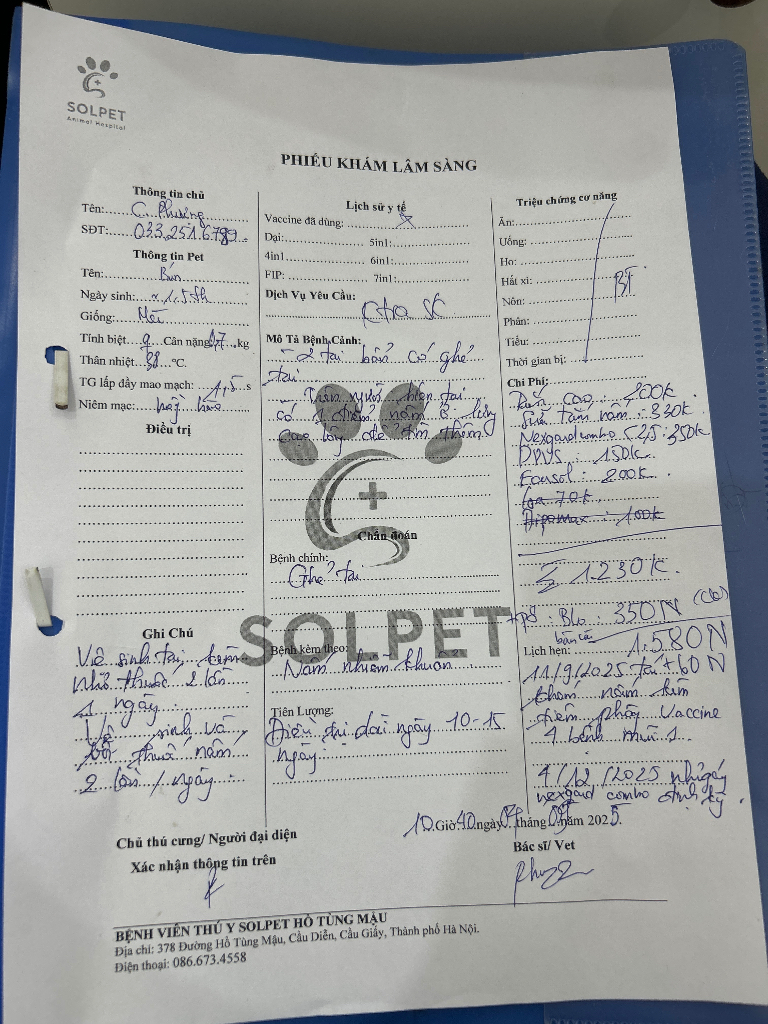 SOLPET
Animal Hospital
PHIẾU KHÁM LÂM SÀNG
Thông tin chủ
Tên: C. Phương
SĐT: 033.251.6789
Thông tin Pet
Tên: Bún
Ngày sinh: 1,5th
Giống: Mèo
Tính biệt Cân nặng 1,7 kg
Thân nhiệt: 38 °C.
TG lấp đầy mao mạch: 1,5 s
Niêm mạc: hồng hào
Điều trị
Ghi Chú
Vệ sinh tai kèm
nhỏ thuốc 2 lần
1 ngày.
Vệ sinh và
bôi thuốc nấm
2 lần / ngày.
Lịch sử y tế
Vaccine đã dùng: x
Dại: 5in1:
4in1 6in1:
FIP: 7in1:
Dịch Vụ Yêu Cầu:
Ktra SK
Mô Tả Bệnh Cảnh:
- 2 tai bẩn có ghẻ
tai
- Trên người hiện tại
có 1 điểm nấm ở lưng
cạo lông để tìm thêm
Chẩn đoán
Bệnh chính:
Ghẻ tai
SOLPET
Bệnh kèm theo:
Nấm nhiễm khuẩn
Tiên Lượng:
Điều trị dài ngày 10-15
ngày
Triệu chứng cơ năng
Ăn:
Uống:
Ho:
Hắt xì:
Nôn:
Phân:
Tiểu:
Thời gian bị:
BT
Chi Phí:
cạo: 200k
Sữa tắm nấm: 330k
Nexgard combo <2,5: 350k
150k
Fonsol: 200k
70k
Dipomax: 100k
Σ 1.230k.
350N (CK)
Lịch hẹn: 1.580N
11/9/2025 tái +60N
khám nấm kèm
tiêm phòng Vaccine
4 bệnh mũi 1.
4/12/2025 nhỏ gáy
nexgard combo định kỳ.
10 Giờ 40 ngày 04 tháng 09 năm 2025
Chủ thú cưng/ Người đại diện
Xác nhận thông tin trên
Bác sĩ/ Vet
BỆNH VIỆN THÚ Y SOLPET HỒ TÙNG MẬU
Địa chỉ: 378 Đường Hồ Tùng Mậu, Cầu Diễn, Cầu Giấy, Thành phố Hà Nội.
Điện thoại: 086.673.4558